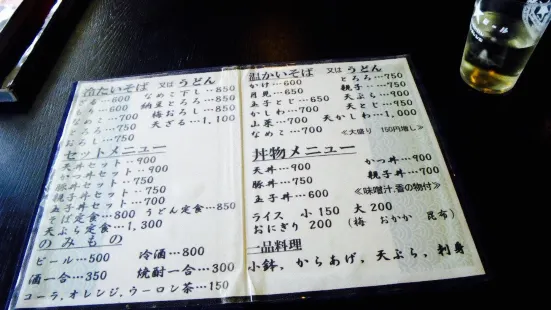 冷たいそば 又は うどん
ざる…600
もり…600
なめこ…700
とろろ…750
おろし…750
なめこ下し…850
納豆とろろ…850
梅おろし…850
天ざる…1,100
セットメニュー
天丼セット‥900
かつ丼セット‥900
豚丼セット‥750
親子丼セット‥750
玉子丼セット‥700
そば定食…800 うどん定食…850
天ぷら定食…1,300
のみもの
ビール…500 冷酒…800
酒一合…350 焼酎一合…300
コーラ,オレンジ,ウーロン茶…150
温かいそば 又は うどん
かけ…600
月見…650
玉子とじ…650
かしわ…700
山菜…700
なめこ…700
とろろ…750
親子…750
天ぷら…900
天とじ…950
天かしわ…1,000
≪大盛り 150円増し≫
丼物メニュー
天丼…900
豚丼…750
玉子丼…600
かつ丼…900
親子丼…700
≪味噌汁,香の物付≫
ライス 小 150 大 200
おにぎり 200 (梅 おかか 昆布)
一品料理
小鉢, からあげ, 天ぷら, 刺身